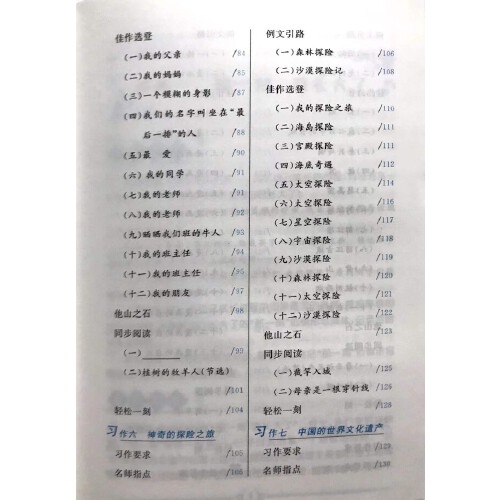 佳作选登
(一)我的父亲 /84
(二)我的妈妈 /85
(三)一个模糊的身影 /87
(四)我们的名字叫坐在“最
后一排”的人 /88
(五)最 爱 /90
(六)我的同学 /91
(七)我的老师 /91
(八)我的老师 /92
(九)晒晒我们班的牛人 /93
(十)我的班主任 /94
(十一)我的班主任 /95
(十二)我的朋友 /97
他山之石 /98
同步阅读
(一)________ /99
(二)植树的牧羊人(节选)
/101
轻松一刻 /104
习作六 神奇的探险之旅
习作要求 /105
名师指点 /106
例文引路
(一)森林探险 /106
(二)沙漠探险记 /108
佳作选登
(一)我的探险之旅 /110
(二)海岛探险 /111
(三)宫殿探险 /111
(四)海底奇遇 /112
(五)太空探险 /114
(六)太空探险 /116
(七)星空探险 /117
(八)宇宙探险 /118
(九)沙漠探险 /119
(十)森林探险 /120
(十一)太空探险 /121
(十二)沙漠探险 /122
他山之石 /123
同步阅读
(一)截竿入城 /125
(二)母亲是一根穿针线
轻松一刻
习作七 中国的世界文化遗产
习作要求
名师指点 /130